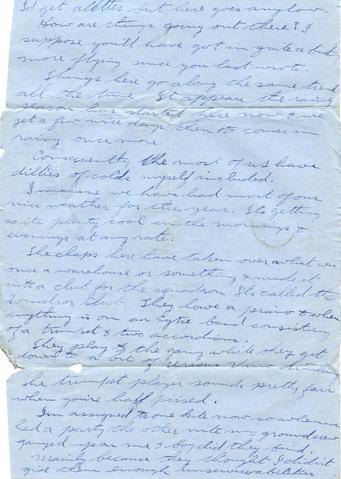 I'd get a letter but here goes anyhow.
How are things going out there? I
suppose you'll have got in quite a bit
more flying since you last wrote.
Things here go along the same trend
all the time. It appears the rainy
season has started here now & we
get a few nice days then it comes in
raining once more.
Consequently the most of us have
dillies of colds myself included.
I imagine we have had most of our
nice weather for this year. Its getting
so its plenty cool in the mornings &
evenings at any rate.
The chaps here have taken over what was
once a warehouse or something & made it
into a club for the squadron. Its called the
Windsor Club. They have a piano & when
anything is on an Eytie band consisting
of a trumpet & two accordions.
They play & the gang while they get
down to a bit of serious
The trumpet player sounds pretty fair
when you're half pissed.
I'm assigned to one kite now so when we
had a party the other nite my ground crew
ganged up on me & boy did they
Mainly because they thought I didn't
give them enough unserviceabilities